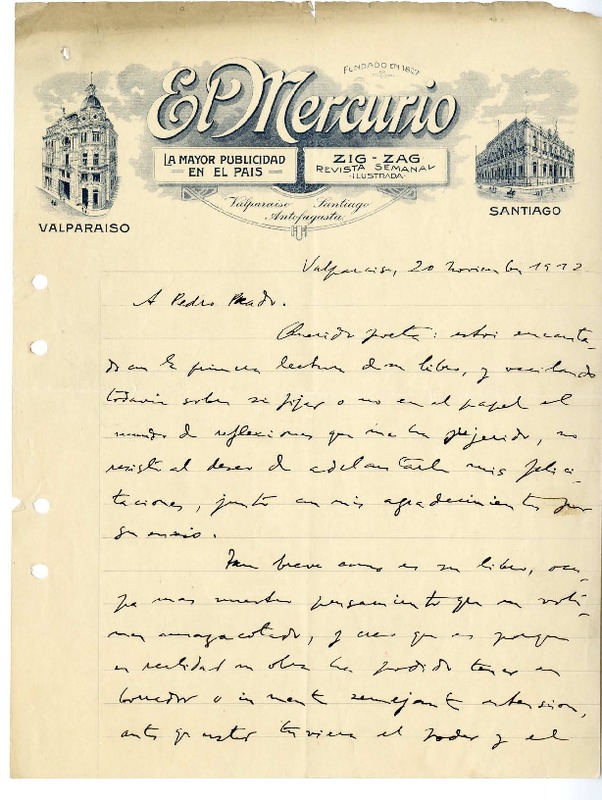 FUNDADO EN 1827
El Mercurio
LA MAYOR PUBLICIDAD
EN EL PAIS
ZIG-ZAG
REVISTA SEMANAL
ILUSTRADA
Valparaiso Santiago
Antofagasta
VALPARAISO
SANTIAGO
Valparaiso, 20 noviembre 1912
A Pedro Prado.
Querido poeta: estoi encanta-
do con la primera lectura de su libro, y vacilando
todavia sobre si fijar o no en el papel el
mundo de reflexiones que me ha sujerido, no
resisto al deseo de adelantarle mis felici-
taciones, junto con mis agradecimientos por
su envio.
Tan breve como es su libro, ocu-
pa mas nuestro pensamiento que un volú-
men amazacotado, y creo que es porque
en realidad su obra ha podido tener en
borrador o in mente semejante estension,
antes que usted tuviera el poder y el